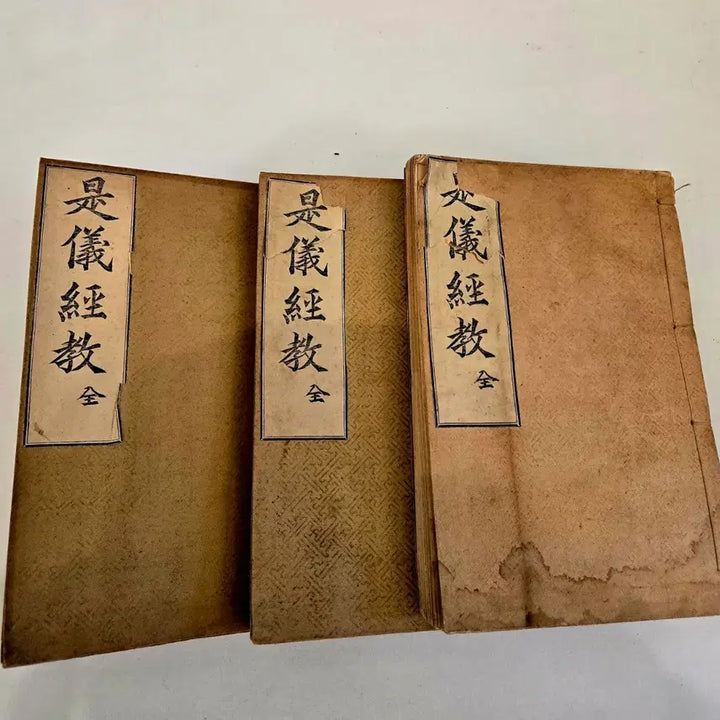 是儀經教全
是儀經教全
是儀經教全